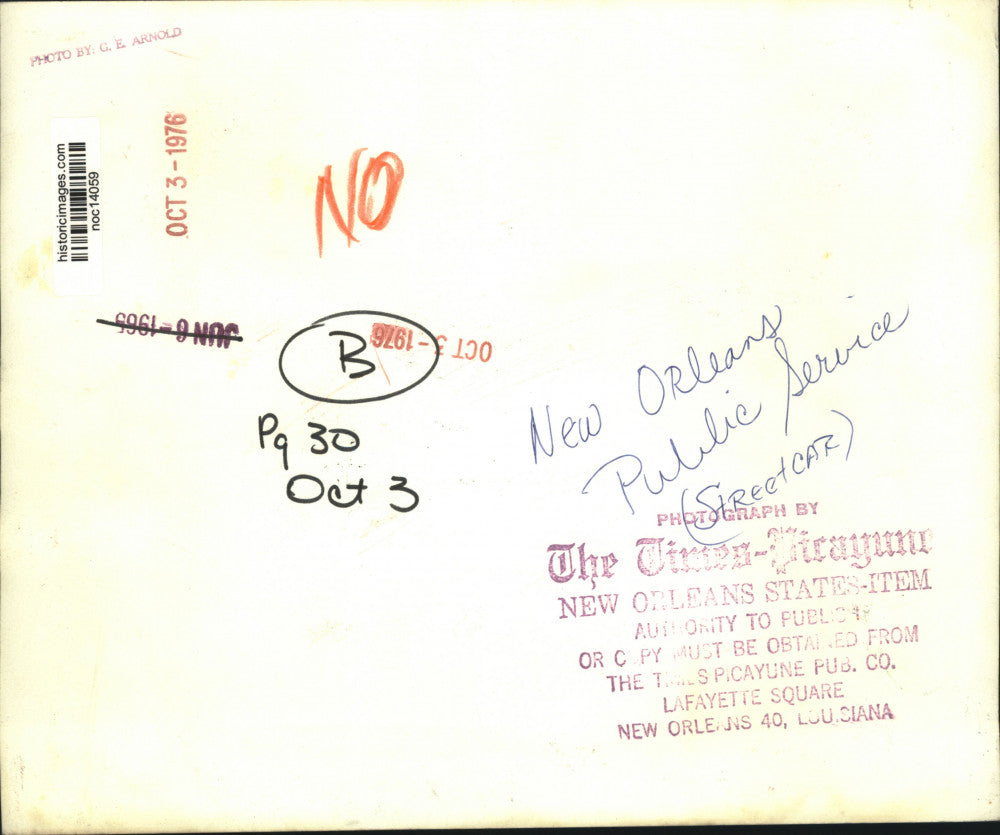 PHOTO BY: G. E. ARNOLD
OCT 3 - 1976
historicimages.com
noc14059
NO
JUN 6 - 1965
B
OCT 3 - 1976
Pg 30
Oct 3
New Orleans
Public Service
(STREETCAR)
PHOTOGRAPH BY
The Times-Picayune
NEW ORLEANS STATES-ITEM
AUTHORITY TO PUBLISH
OR COPY MUST BE OBTAINED FROM
THE TIMES PICAYUNE PUB. CO.
LAFAYETTE SQUARE
NEW ORLEANS 40, LOUISIANA